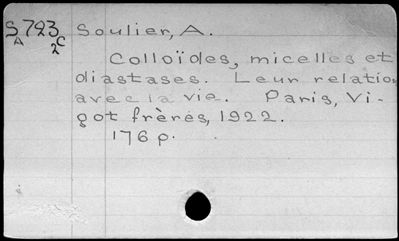 S723 Soulier, A.
A 2C
Colloïdes, micelles et
diastases. Leur relation
avec la vie. Paris, Vi-
got frères, 1922.
176 p.